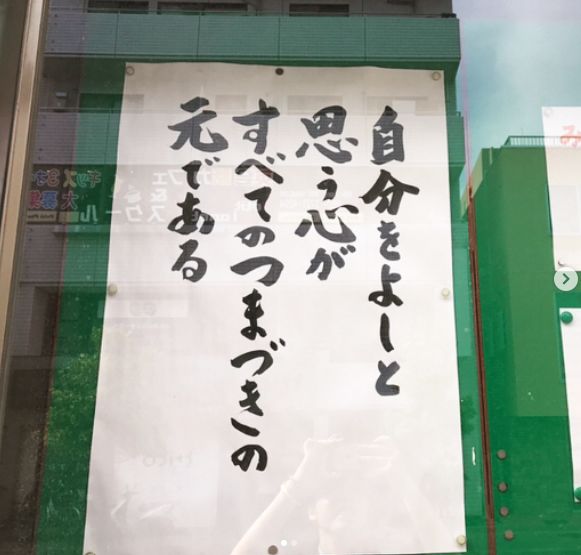 自分をよしと
思う心が
すべてのつまづきの
元である
み